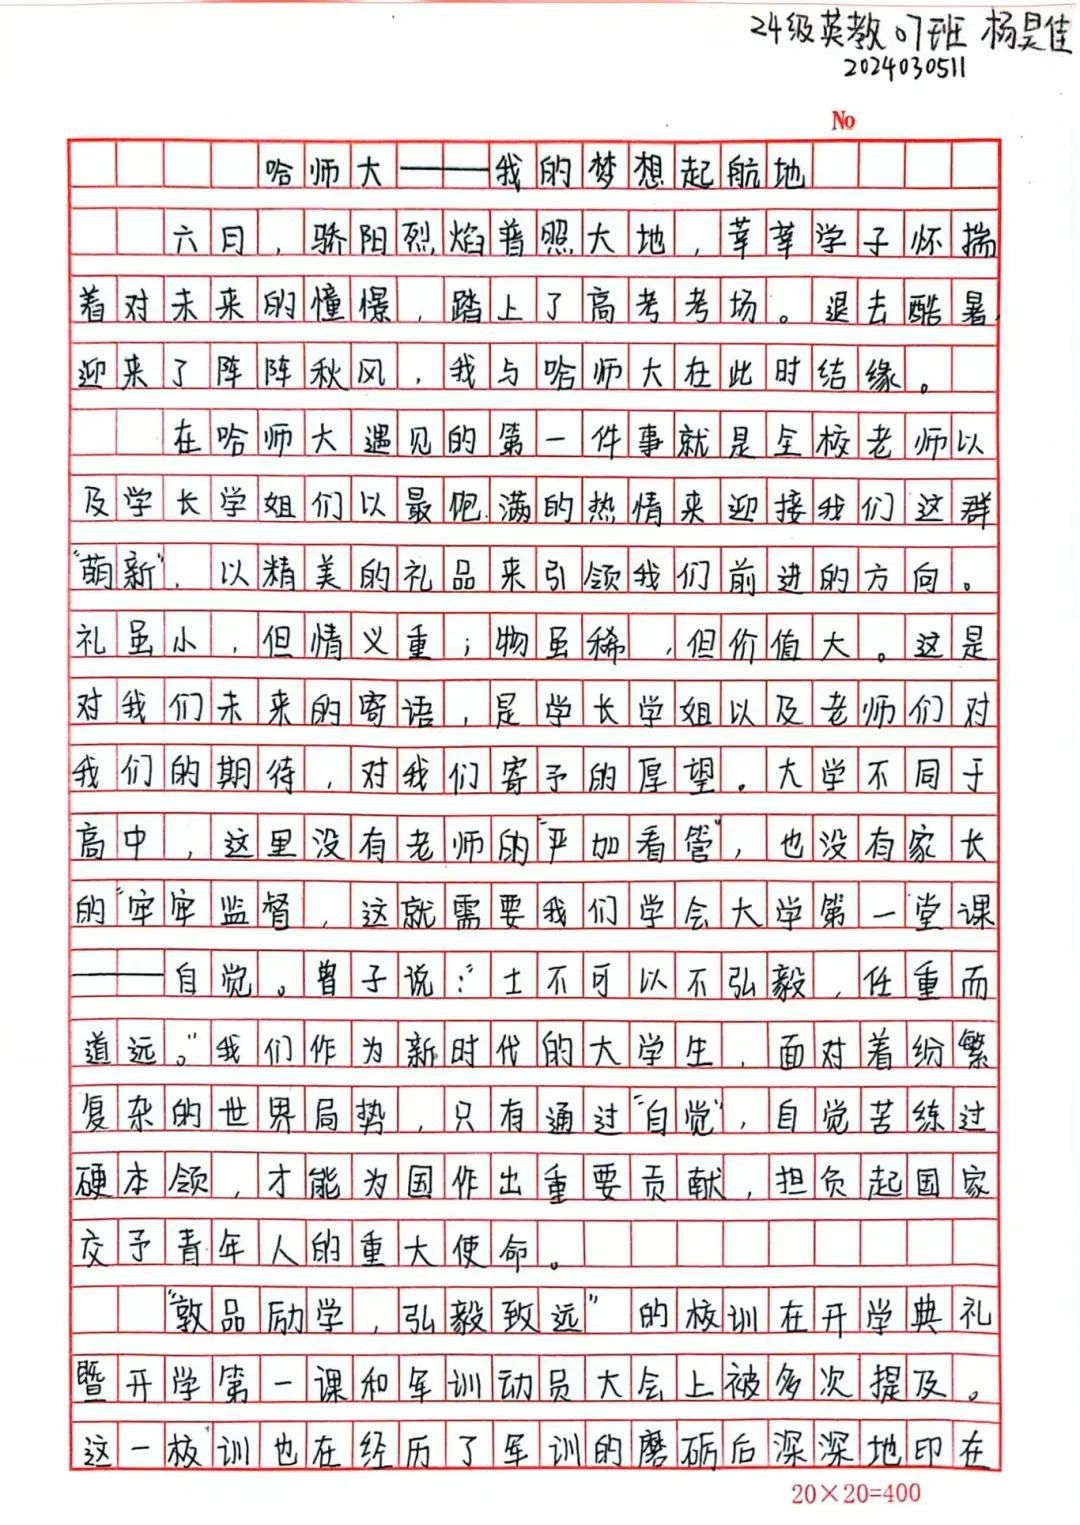 24级英教07班 杨昊佳
2024030511
No
哈师大——我的梦想起航地
六月，骄阳烈焰普照大地，莘莘学子怀揣
着对未来的憧憬，踏上了高考考场。退去酷暑，
迎来了阵阵秋风，我与哈师大在此时结缘。
在哈师大遇见的第一件事就是全校老师以
及学长学姐们以最饱满的热情来迎接我们这群
“萌新”，以精美的礼品来引领我们前进的方向。
礼虽小，但情义重；物虽稀，但价值大。这是
对我们未来的寄语，是学长学姐以及老师们对
我们的期待，对我们寄予的厚望。大学不同于
高中，这里没有老师的“严加看管”，也没有家长
的“牢牢监督，这就需要我们学会大学第一堂课
——自觉。曾子说：“士不可以不弘毅，任重而
道远。”我们作为新时代的大学生，面对着纷繁
复杂的世界局势，只有通过“自觉”，自觉苦练过
硬本领，才能为国作出重要贡献，担负起国家
交予青年人的重大使命。
“敦品励学，弘毅致远”的校训在开学典礼
暨开学第一课和军训动员大会上被多次提及。
这一校训也在经历了军训的磨砺后深深地印在
20×20=400